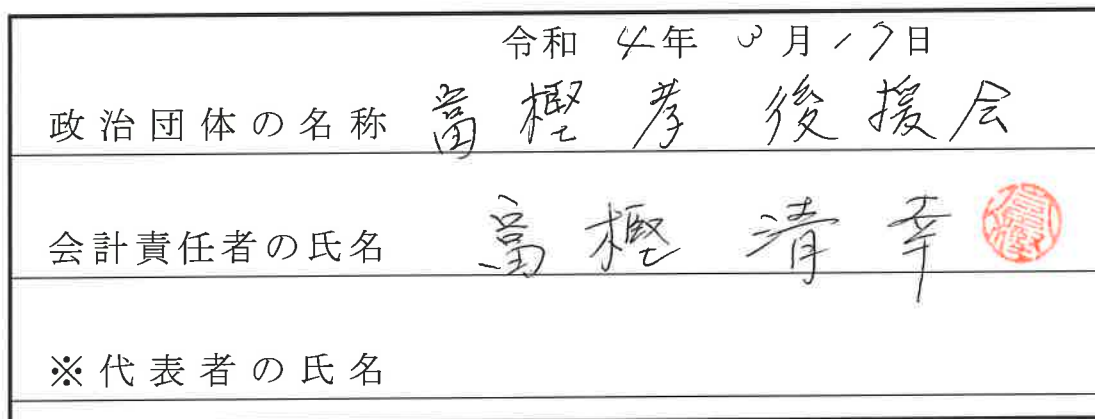 令和 4年 3月17日
政治団体の名称 富樫孝後援会
会計責任者の氏名 富樫清幸
※代表者の氏名